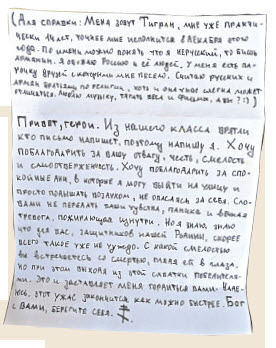 (Для справки: Меня зовут Тигран, мне уже практи-
чески 14 лет, точнее мне исполнится 8 декабря этого
года. По имени можно понять что я нерусский, то бишь
армянин. Я обожаю Россию и её людей. У меня есть па-
рочку друзей с которыми мне весело. Считаю русских и
армян братьями по религии, хоть и она чуток слегка может
отличаться. Люблю музыку, читать книги и фильмы, а вы? :) )
Привет, герои. Из нашего класса врятли
кто письмо напишет, поэтому напишу я. Хочу
поблагодарить за вашу отвагу, честь, смелость
и самоотверженность. Хочу поблагодарить за спо-
койные дни, в которые я могу выйти на улицу и
просто подышать воздухом, не опасаясь за себя. Сло-
вами не передать ваши чувства, паника и вечная
тревога, пожирающая изнутри. Но я знаю, знаю
что для вас, защитников нашей Родины, скорее
всего такое уже не чуждо. С какой смелостью
вы встречаетесь со смертью, глядя ей в глаза.
но при этом выходя из этой схватки победителя-
ми. Это и заставляет меня гордиться вами. Наде-
юсь, этот ужас закончится как можно быстрее. Бог
с вами, берегите себя.